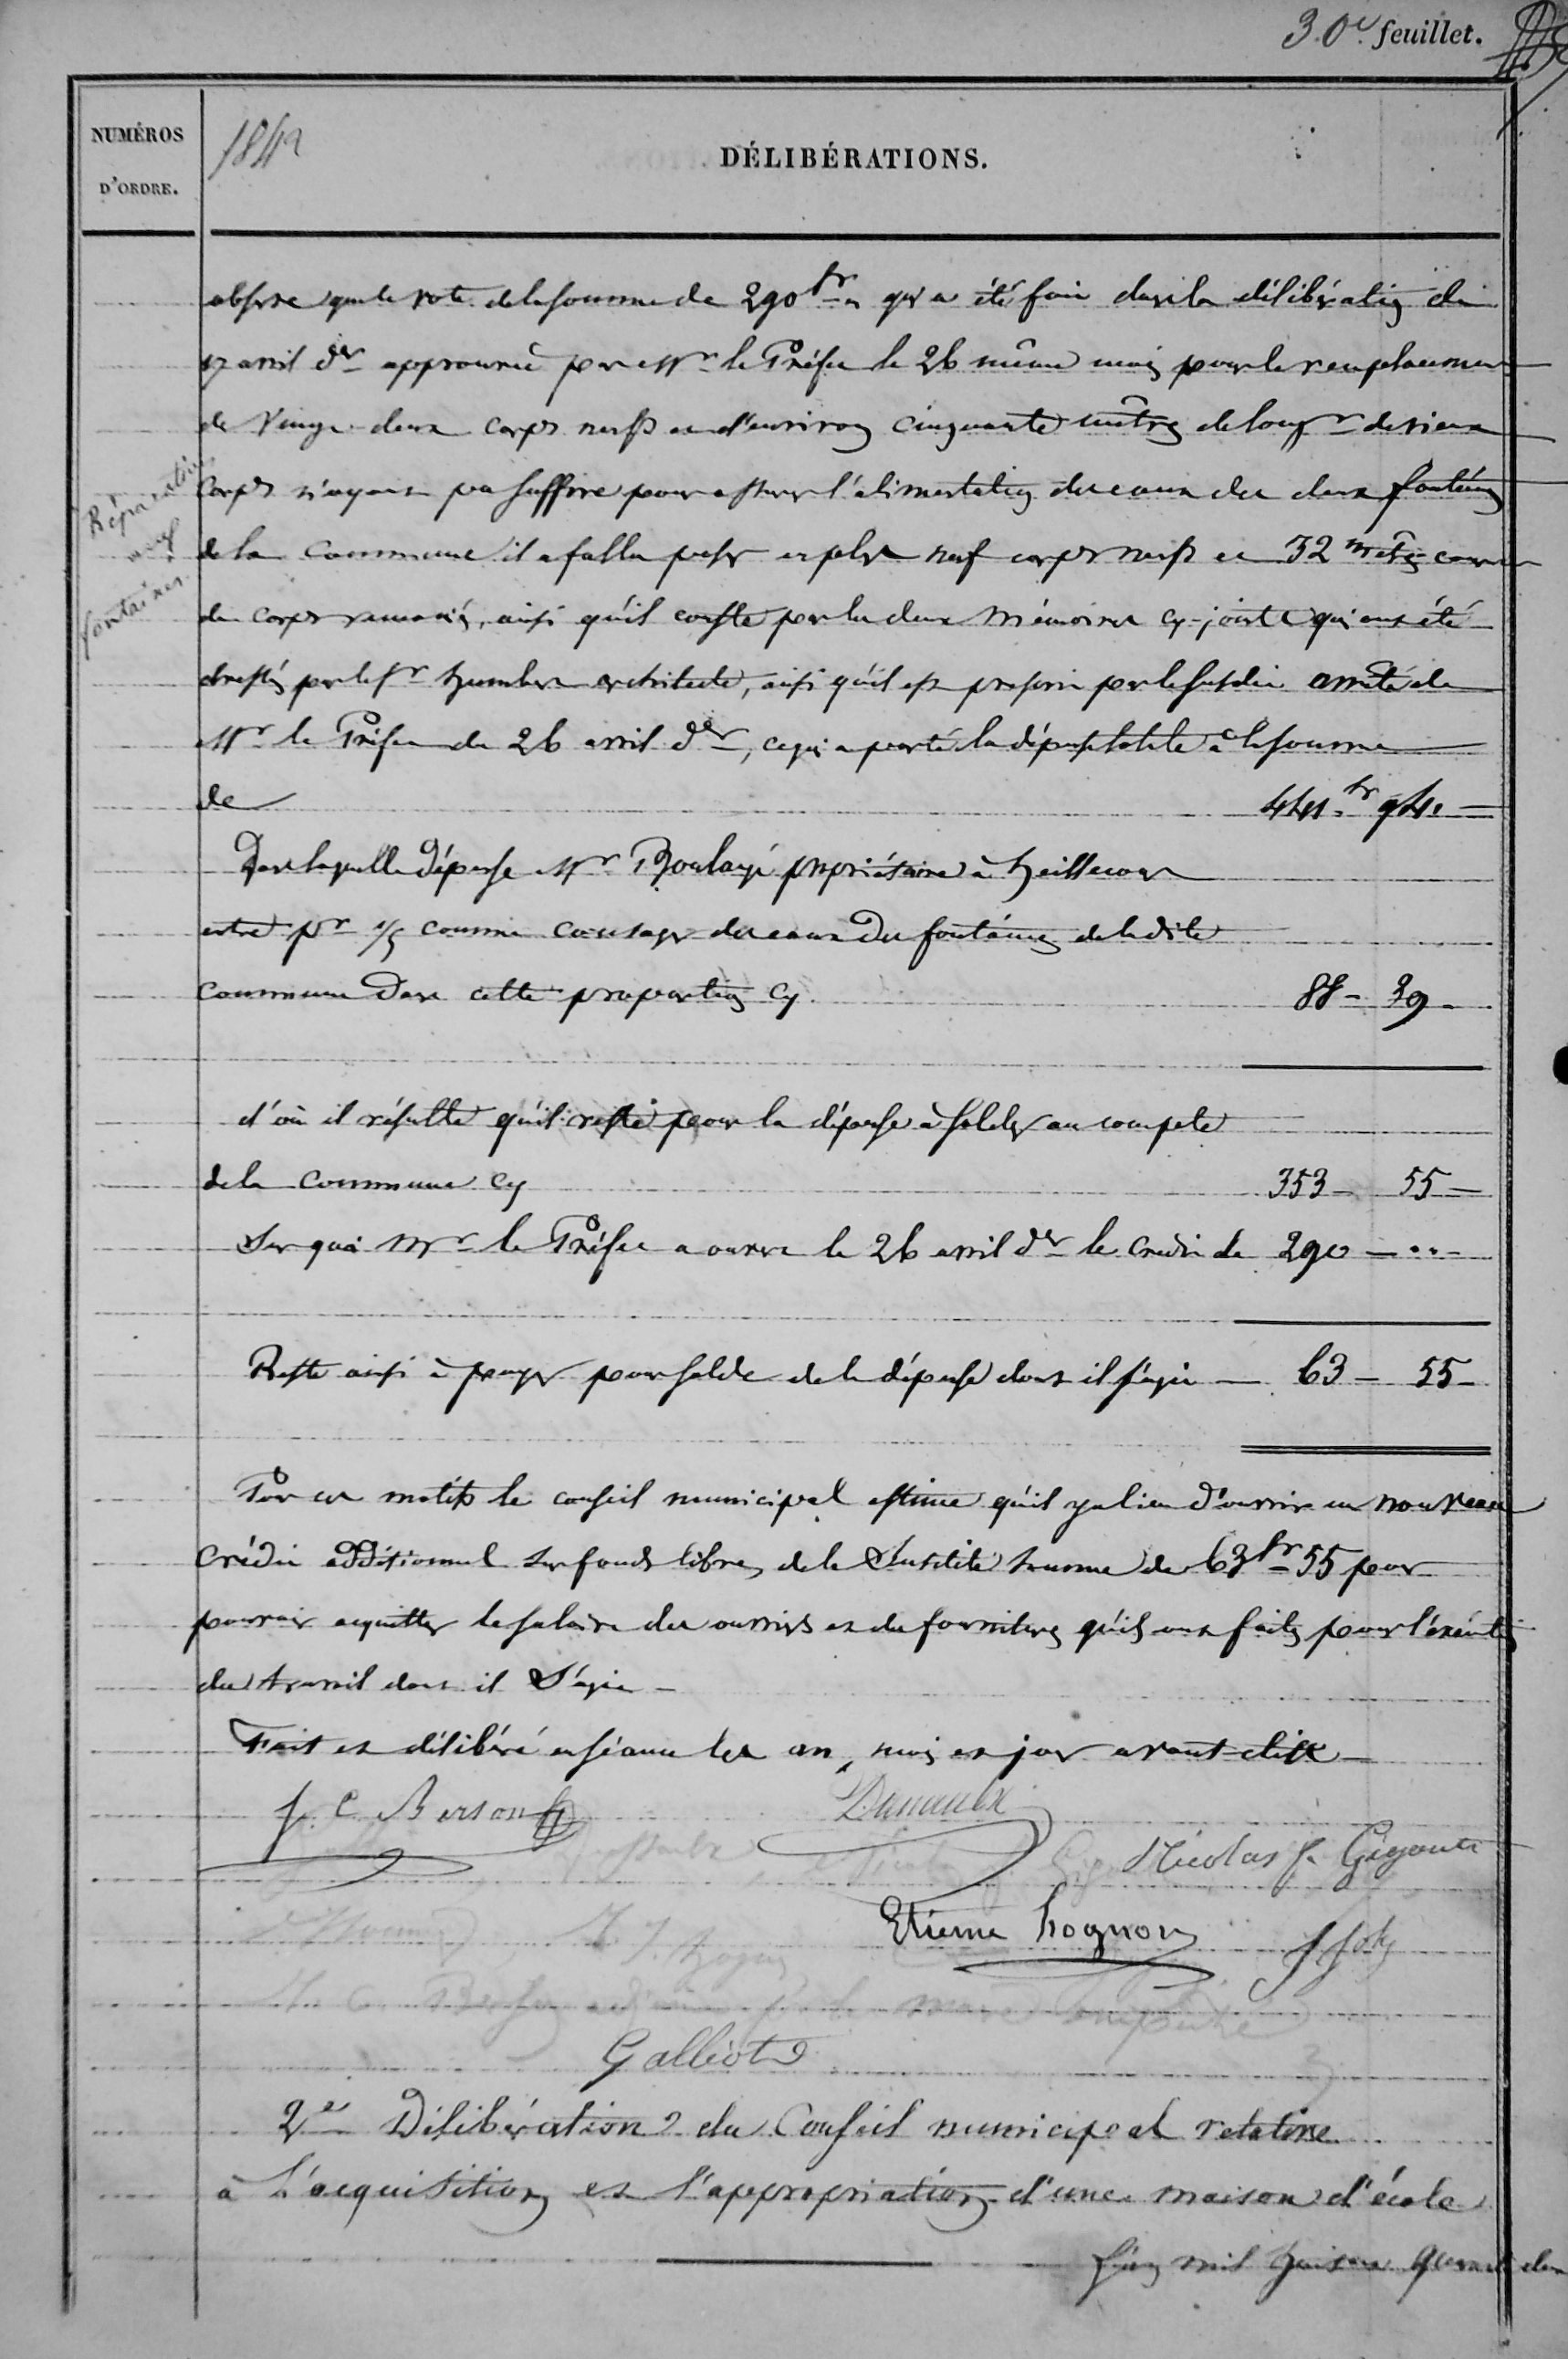 30e feuillet.
NUMÉROS
D'ORDRE.
1842
DÉLIBÉRATIONS.
observe que le vote de la somme de 290 fr qui a été fait dans la délibération du
avril der approuvée par Mr le Préfet le 26 même mois pour le remplacement
de Vingt-deux corps neufs et d'environ cinquante mètres de longr de vieux
Réparation
aux
fontaines.
corps n'ayant pu suffire pour assurer l'alimentation des eaux des deux fontaines
de la Commune il a fallu poser en plus neuf corps neufs et 32 mètres
de corps remaniés, ainsi qu'il conste par les deux Mémoires cy-joints qui ont été
dressés par le Sr humbert architecte, ainsi qu'il est prescrit par le susdit arrêté de
Mr le Préfet du 26 avril der, ce qui a porté la dépense totale à la somme
de 441 fr 94
Dans laquelle Dépense Mr Boulangé propriétaire à heillecourt
entre pr 1/5 comme co-usager des eaux des fontaines de ladite
Commune Dans cette proportion cy 88 - 39 -
d'où il résulte qu'il reste pour la dépense à solder au compte
de la Commune cy 353 - 55 -
Sur quoi Mr le Préfet a ouvert le 26 avril der le Crédit de 290 - .. -
Reste ainsi à payer pour solde de la dépense dont il s'agit - 63 - 55 -
Par ces motifs le conseil municipal estime qu'il y a lieu d'ouvrir un nouveau
Crédit additionnel sur fonds libres de la Susdite Somme de 63 fr 55 pour
pouvoir acquitter le salaire des ouvriers et des fournitures qu'ils ont faites pour l'exécution
du travail dont il S'agit -
Fait et délibéré en séance les an, mois et jour avant-dits -
J. C. Berson
Nicolas f. Gigout
Etienne hognon
Galliot
2e Délibération du Conseil municipal relative
à L'acquisition et l'appropriation d'une maison d'école
L'an mil huit cent quarante deux